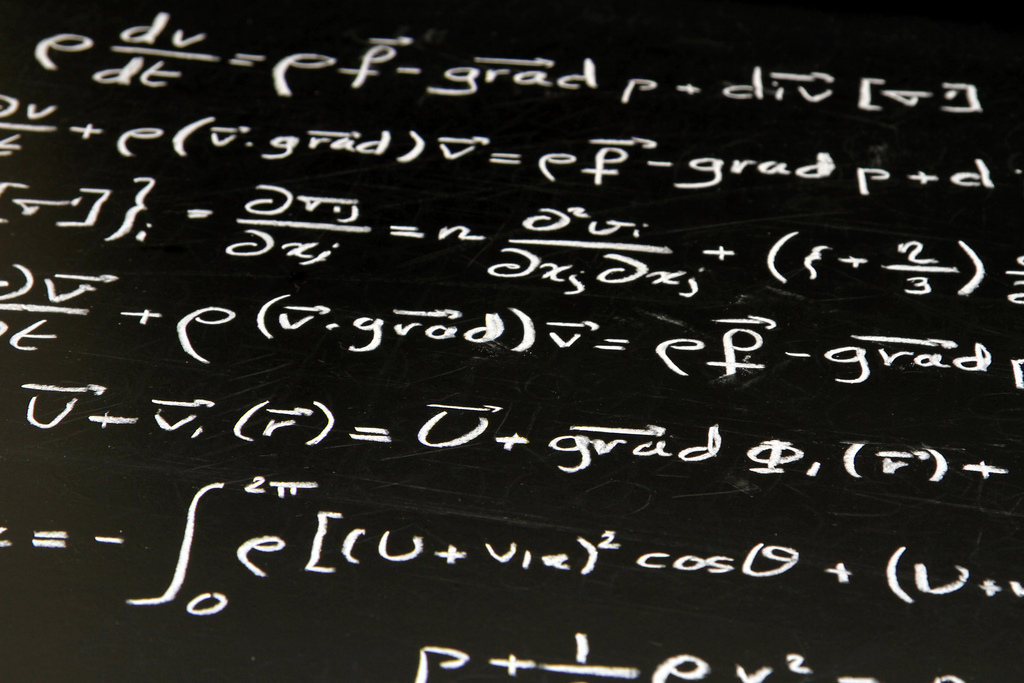 ρ dv/dt = ρ f⃗ - g⃗rad p + div⃗ [σ]
∂v/t + ρ (v⃗. g⃗rad) v⃗ = ρ f⃗ - grad p + d
[σ]}ᵢ = ∂σᵢⱼ/∂xⱼ = η ∂²vᵢ/∂xⱼ∂xⱼ + (ξ + η/3)
∂v⃗/∂t + ρ (v⃗. g⃗rad) v⃗ = ρ f⃗ - g⃗rad
U⃗ + v⃗₁ (r⃗) = U⃗ + g⃗rad Φ₁ (r⃗) +
= - ∫₀^2π ρ [(U + v₁ₓ)² cosθ + (U +
P + 1/ ρ v² =